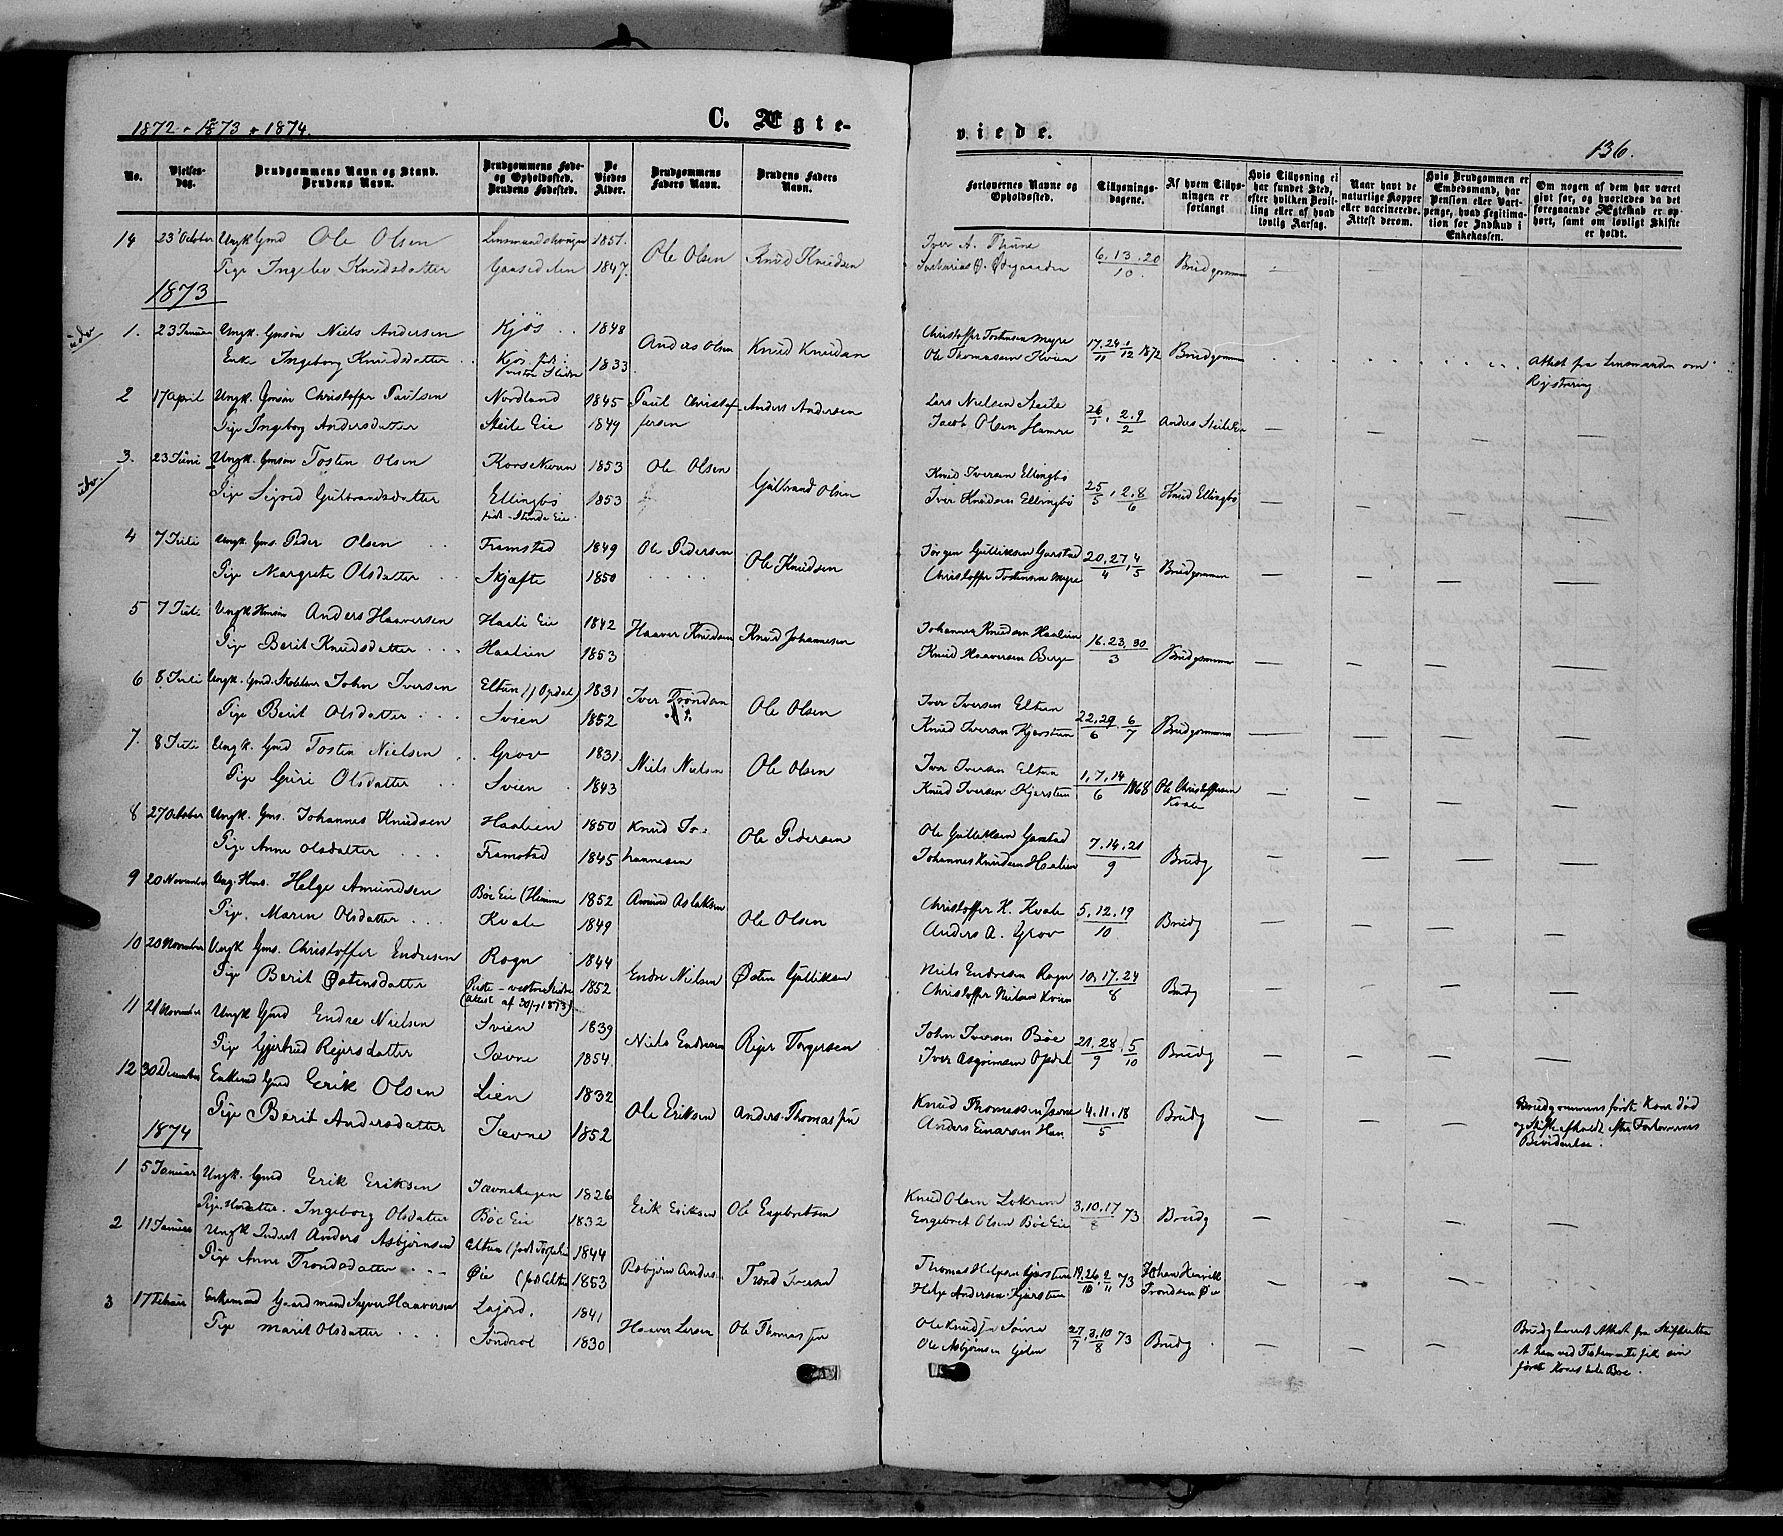 1872 - 1873 & 1874.
C. Ægteviede.
136.
No.
Vielsesdag.
Brudgommens Navn og Stand. Brudens Navn.
Brudgommens Føde- og Opholdssted. Brudens Fødested.
De Viedes Alder.
Brudgommens Faders Navn.
Brudens Faders Navn.
Forlovernes Navne og Opholdssted.
Tillysningsdagene.
Af hvem Tillysningen er forlangt
Hvis Tillysning ei har fundet Sted, efter hvilken Bevilling eller af hvad lovlig Aarsag.
Naar havt de naturlige Kopper eller vaccinerede. Attest derom.
Hvis Brudgommen er Embedsmand, har Pension eller Vartpenge, hvad Legitimation for Indskud i Enkekassen.
Om nogen af dem har været givt før, og hvorledes da det foregaaende Ægteskab er ophørt, samt om lovligt Skifte er holdt.
14 23' October Ungk Gmd Ole Olsen 1851. Ole Olsen Knud Knudsen Iver A. Thune 6. 13. 20 / 10. Brudgommen
Pige Ingelev Knudsdatter 1847.
1873
1. 23 Januar Ungk. Gmsøn Niels Andersen Kjøs 1848 Anders Olsen Knud Knudsen Christoffer Tostensen Myre 17. 24 / 11 1 / 12 1872 Brudgommen Attest fra Lensmanden om
Enke Ingeborg Knudsdatter Kjøs født vestre Slidre 1833 Ole Thomassen Kvien Registrering.
2 17 April Ungk. Gmsøn Christoffer Paulsen Nordland 1845 Paul Christoffersen Anders Andersen Lars Nielsen Steile 26 / 1, 2. 9 / 2 Anders Steile
Pige Ingeborg Andersdatter Steile Eie 1849 Jacob Olsen Hamre
3. 23 Juni Ungk. Gmsøn Tosten Olsen 1853 Ole Olsen Gulbrand Olsen Knud Iversen Ellingbø 25 / 5, 2. 8 / 6 Knud Ellingbø
Pige Sigrid Gulbrandsdatter Ellingbø 1853 Iver Knudsen Ellingbø
4 7 Juli Ungk. Gms. Peder Olsen Framstad 1849 Ole Pedersen Ole Knudsen Jørgen Gulliksen Garstad 20. 27 / 4, 4 / 5 Brudgommen
Pige Margrete Olsdatter Skjæfte 1850 Christoffer Tostensen Myre
5 7 Juli Ungk Hmsøn Anders Haaversen Haali Eie 1842 Haaver Knudsen Knud Johannesen Johannes Knudsen Haalien 16. 23. 30 / 3 Brudgommen
Pige Berit Knudsdatter Haalien 1853 Knud Haaversen Berge
6 8 Juli Ungk. Gmd. John Iversen Eltun (f Opdal) 1831 Iver Trondsen Ole Olsen Iver Iversen Eltun 22. 29 / 6 6 / 7 Brudgommen
Pige Berit Olsdatter Svien 1852 Knud Iversen Kjersten
7. 8 Juli Ungk. Gmd Tosten Nielsen Grov 1831. Niels Nielsen Ole Olsen Iver Iversen Eltun 1. 7. 14 / 6 1868 Ole Christoffersen Kvale
Pige Guri Olsdatter Svien 1843 Knud Iversen Kjersten
8 27 October Ungk. Gms. Johannes Knudsen Haalien 1850 Knud Johannesen Ole Pedersen Ole Gulliksen Garstad 7. 14. 21 / 9 Brudg
Pige Anne Olsdatter Framstad 1845 Johannes Knudsen Haalien
9 20 November Ung. Hms. Helge Amundsen Bøe Eie (Hemme 1852 Amund Aslaksen Ole Olsen Christoffer K. Kvale 5. 12. 19 / 10 Brudg
Pige. Maren Olsdatter Kvale 1849 Anders A. Grov
10 20 November Ungk Gms. Christoffer Endresen Rogn 1844 Endre Nielsen Østen Gulliksen Niels Endresen Rogn 10. 17. 24 / 8 Brudg
Pige Berit Østensdatter Riste - vestre Slidre 1852 Christoffer Nielsen Kvien
(attest af 30/7 1873)
11 21 November Ungk Gmd Endre Nielsen Svien 1839 Niels Endresen Reier Torgersen John Iversen Bøe 21. 28 / 9, 5 / 10 Brudg
Pige Gjertrud Reiersdatter Jævne 1854. Iver Asgrimsen Opdal
12 30 December Enkemd Gmd Erik Olsen Lien 1832 Ole Eriksen Anders Thomassen Knud Thomassen Jævne 4. 11. 18 / 5 Brudg Brudgommens første Kone død
Pige Berit Andersdatter Jævne 1852 Anders Einarsen Han og Skifte afholdt efter Forlovernes Bevidnelse.
1874
1 5 Januar Ungk. Gmd Erik Eriksen Jævnehagen 1826 Erik Eriksen Ole Engebretsen Knud Olsen Lekrem 3. 10. 17 / 8 73 Brudg
Pige. Ingeborg Olsdatter Bøe Eie 1832 Engebret Olsen Bøe Eie
2 11 Januar Ungk Inderst Anders Asbjørnsen Eltun 1844 Asbjørn Anders. Trond Iversen Thomas Helgesen Kjersten 19. 26 / 10, 2 / 11 73 Johan Henrik
Pige Anne Trondsdatter Øie (født Eltun 1853 Helge Andersen Kjersten Trondsen Øie
3 17 Februar Enkemand Gaardmand Syver Haaversen Lajord. 1841 Haaver Larsen Ole Thomassen Ole Knudsen 27 / 7, 3. 10 / 8 73 Brudg Brudg leveret Attest fra Skifteretten
Pige Marit Olsdatter Søndrol 1830 Ole Asbjørnsen at han ved Testamente fik sin
første Kones hele Boe.